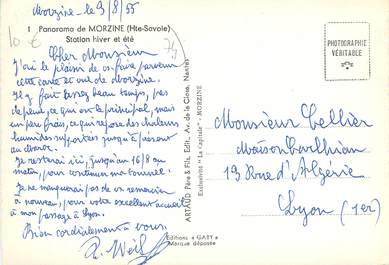 Morzine le 9/8/55
10 €
74
1 Panorama de MORZINE (Hte-Savoie)
Station hiver et été
Cher Monsieur
J'ai le plaisir de vs faire parvenir
cette carte et vue de Morzine.
Il y fait assez beau temps, pas
de pluie, ce qui est le principal, mais
un peu frais, ce qui repose des chaleurs
humides supportées jusqu'à présent
au
Je resterai ici, jusqu'au 16/8 au
matin, pour continuer ma
Je ne manquerai pas de vs remercier
à nouveau, pour votre excellent accueil
à mon passage à Lyon.
Bien cordialement à vous.
R. Weil
ARTAUD Père & Fils, Edit., Av. de la Close, Nantes
Exclusivité "La Capitale" - MORZINE
Editions « GABY »
Marque déposée
PHOTOGRAPHIE
VÉRITABLE
Monsieur Cellier
Maison
13 Rue d'Algérie
Lyon (1er)